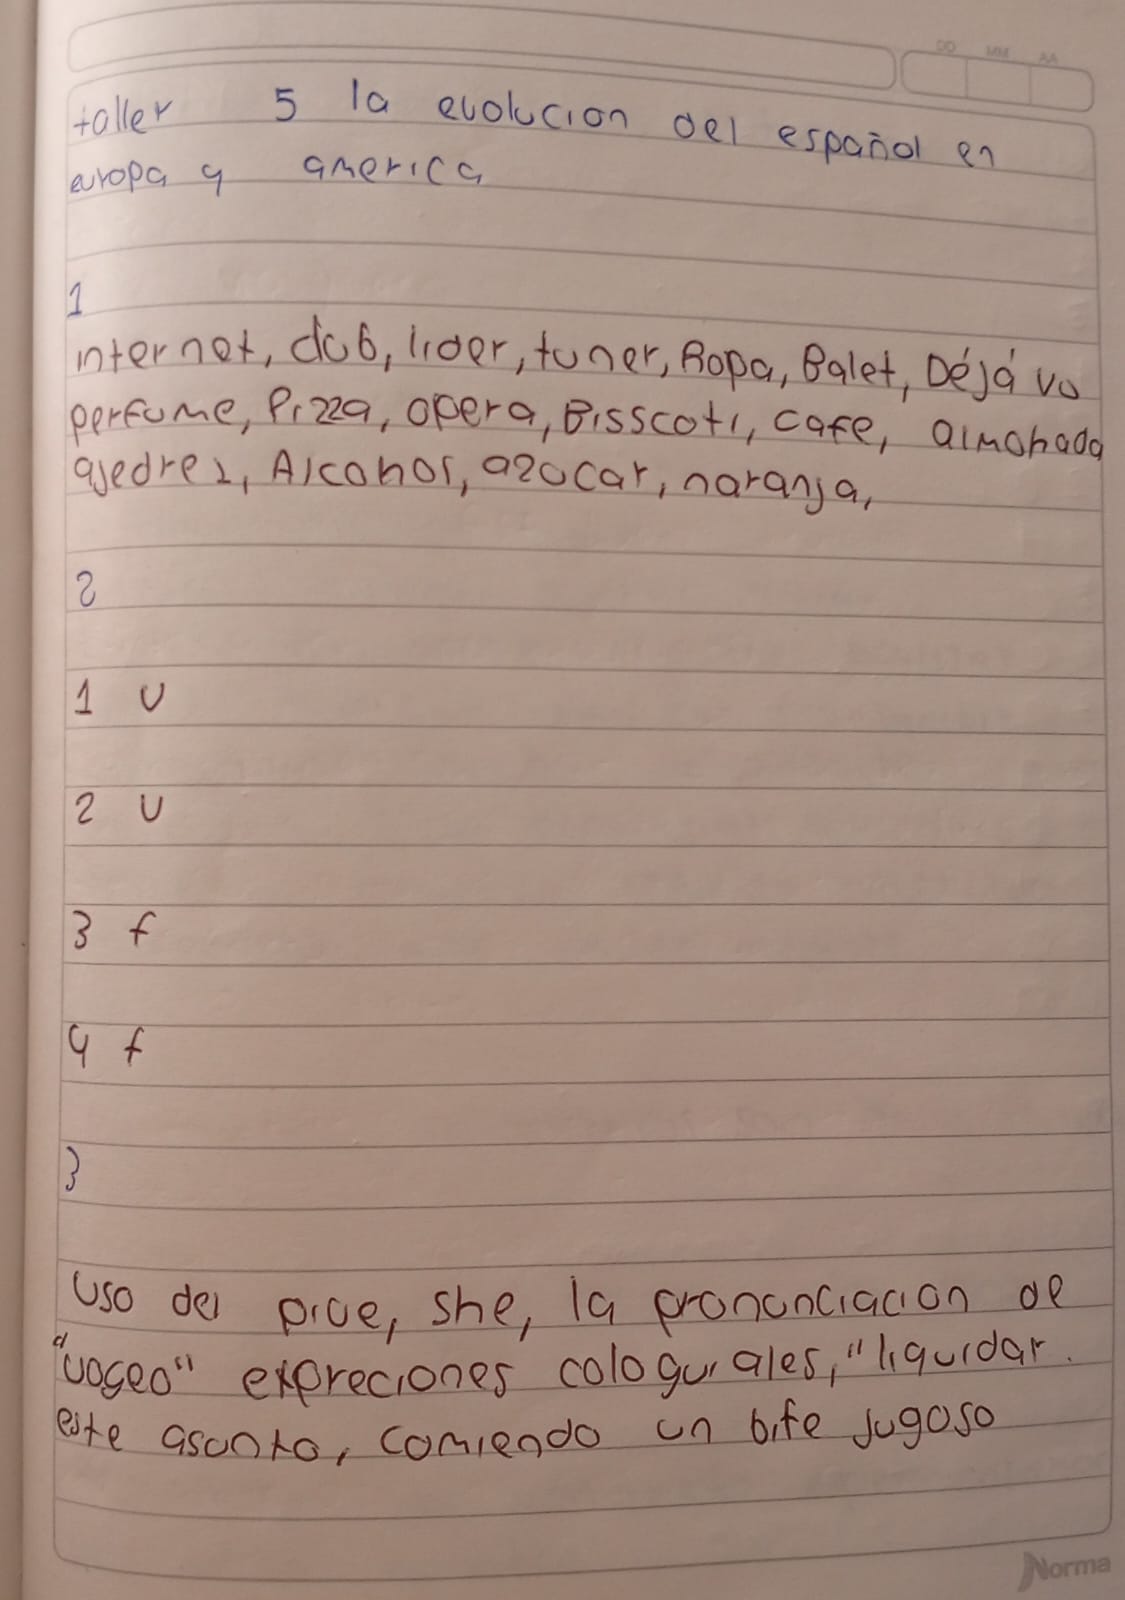 DD MM AA
taller 5 la evolucion del español en
europa y america
1
internet, club, lider, tuner, Ropa, Balet, Déjá vu
perfume, Pizza, opera, Bisscoti, cafe, almohada
ajedrez, Alcohol, azucar, naranja,
2
1 V
2 V
3 f
4 f
3
uso del pive, she, la prononciacion de
"voseo" expreciones cologuiales, "liquidar.
este asunto, comiendo un bife jugoso
Norma